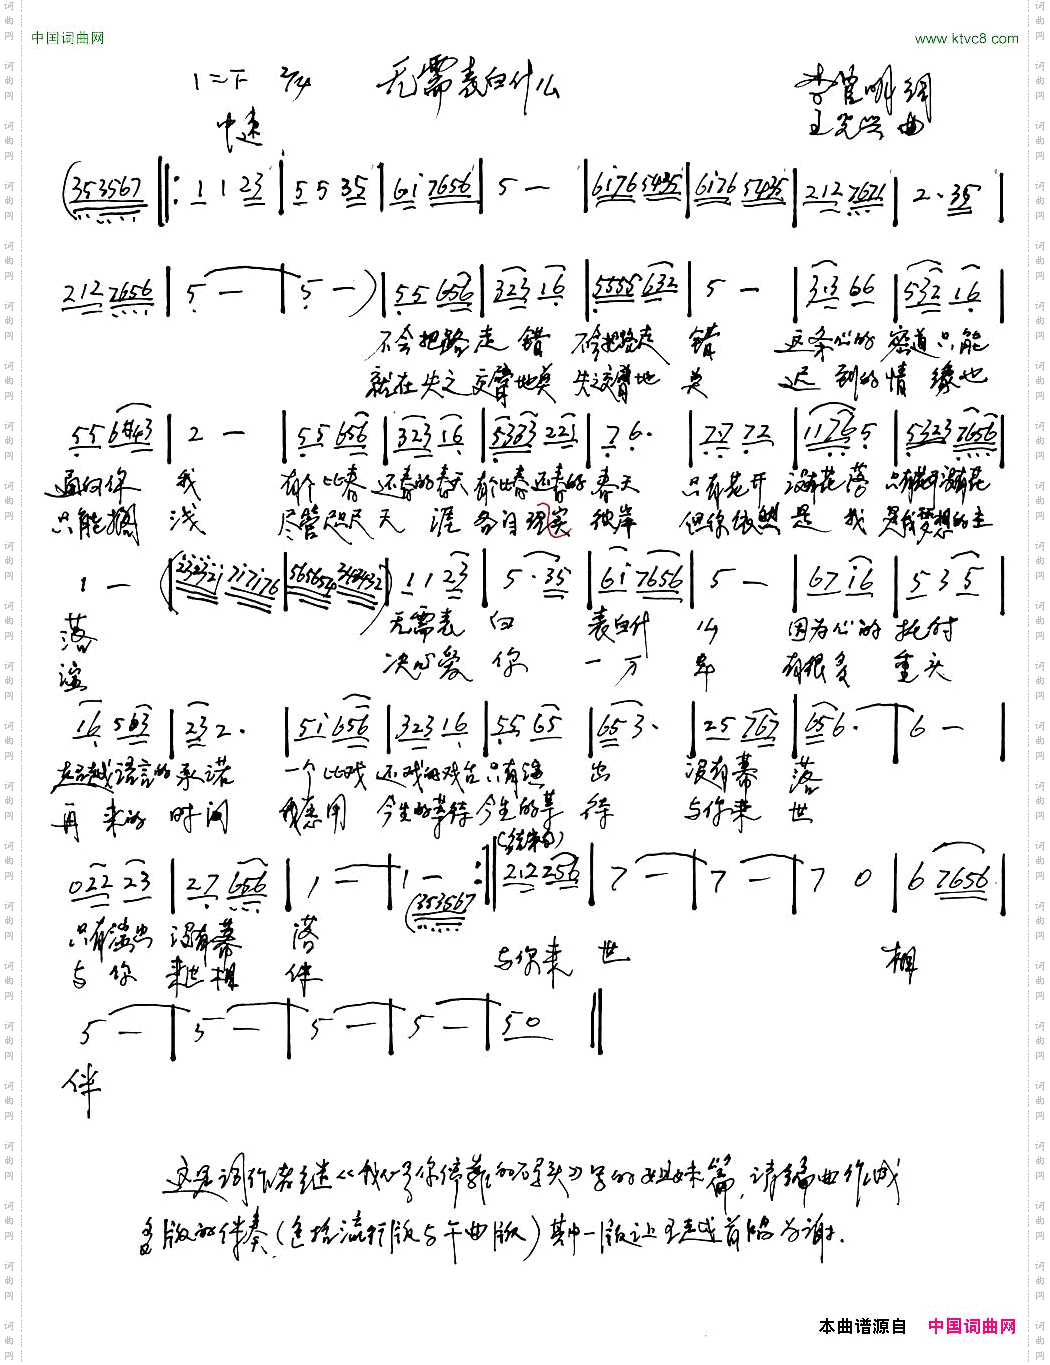 中国词曲网
www.ktvc8.com
1=F 2/4 无需表白什么
中速 曲
(353567 ‖: 1 1 23 | 5 5 35 | 6i 7656 | 5 — | 6i76 5435 | 6i76 5435 | 212 7671 | 2 · 35 |
212 7656 | 5 — | 5 — ) | 55 656 | 323 16 | 5555 632 | 5 — | 3·3 66 | 532 16 |
不会把路走 错 不会把路走 错 这条心的 密道只能
就在失之 交臂地奠 失之交臂地 奠 迟 到的情 缘也
55 6#43 | 2 — | 55 656 | 323 16 | 5333 221 | 7 6· | 77 72 | 1176 5 | 5323 7656 |
通向你 我 有个比春 还春的春天 有个比春还春的 春天 只有花开 没有花 落 只有花开没有花
只能搁 浅 尽管咫尺 天 涯 各自现实 彼岸 但你依然 是 我 是我梦想的主
1 — ( | 565654 ) 1 1 23 | 5 · 35 | 6i 7656 | 5 — | 67 i6 | 5 3 5 |
落 无需表 白 表白什 么 因为心的 托付
演 决心爱 你 一 万 年 有很多 重头
16 563 | 23 2· | 5i 656 | 323 16 | 55 65 | 65 3· | 25 767 | 656· | 6 — |
超越语言的 承诺 一个比戏 还戏的戏台 只有演 出 没有幕 落
再 来的 时间 我愿用 今生的等待 今生的等 待 与你来 世
(结束句)
022 23 | 27 656 | 1 — | 1 — :‖ 212 256 | 7 — | 7 — | 7 0 | 6 7656 |
(353567
只有演出 没有幕 落 与你来 世 相
与 你 来世相 伴
5 — | 5 — | 5 — | 5 — | 50 ‖
伴
这是词作者继《我心了你停靠的码头》后的姐妹篇,请编曲作成
多版的伴奏,(包括流行版与午曲版)其中一版让王建越首唱为谢.
本曲谱源自 中国词曲网